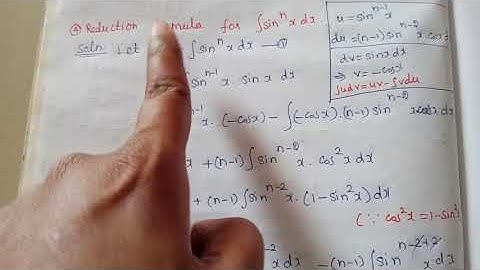 ④ Reduction formula for ∫sinⁿx dx.
Soln. Let ∫sinⁿx dx —①
∫sinⁿ⁻¹x . sinx dx
x.(-cosx) - ∫(-cosx).(n-1)sinⁿ⁻²x cosx dx
x + (n-1)∫sinⁿ⁻²x . cos²x dx
+ (n-1)∫sinⁿ⁻²x . (1-sin²x) dx
(∵ cos²x = 1-sin²
x dx - (n-1)∫sinⁿ⁻²⁺²x dx
u = sinⁿ⁻¹x
du = (n-1)sinⁿ⁻²x . cosx
dv = sinx dx
⇒ v = -cosx
∫udv = uv - ∫vdu